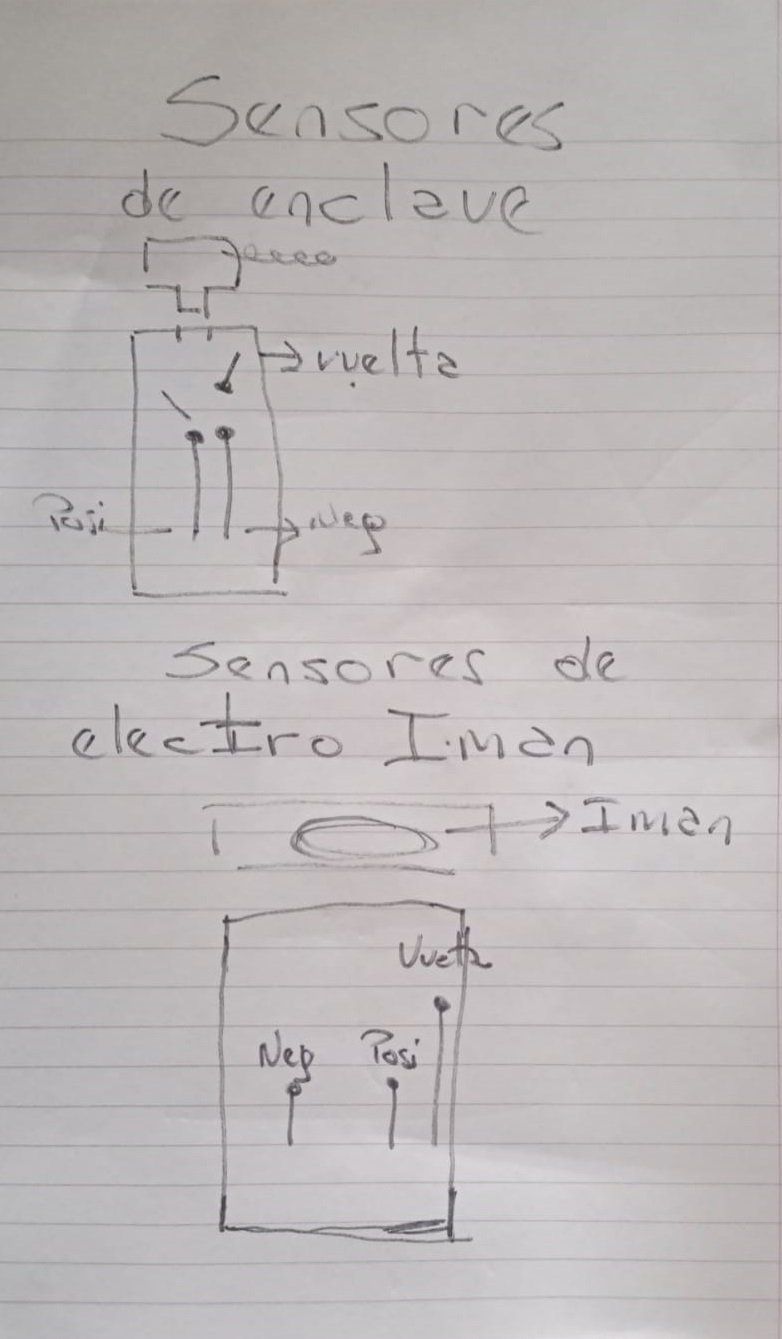 Sensores
de enclave
vuelta
Posi
Neg
Sensores de
electro Iman
Iman
Vuelta
Neg
Posi